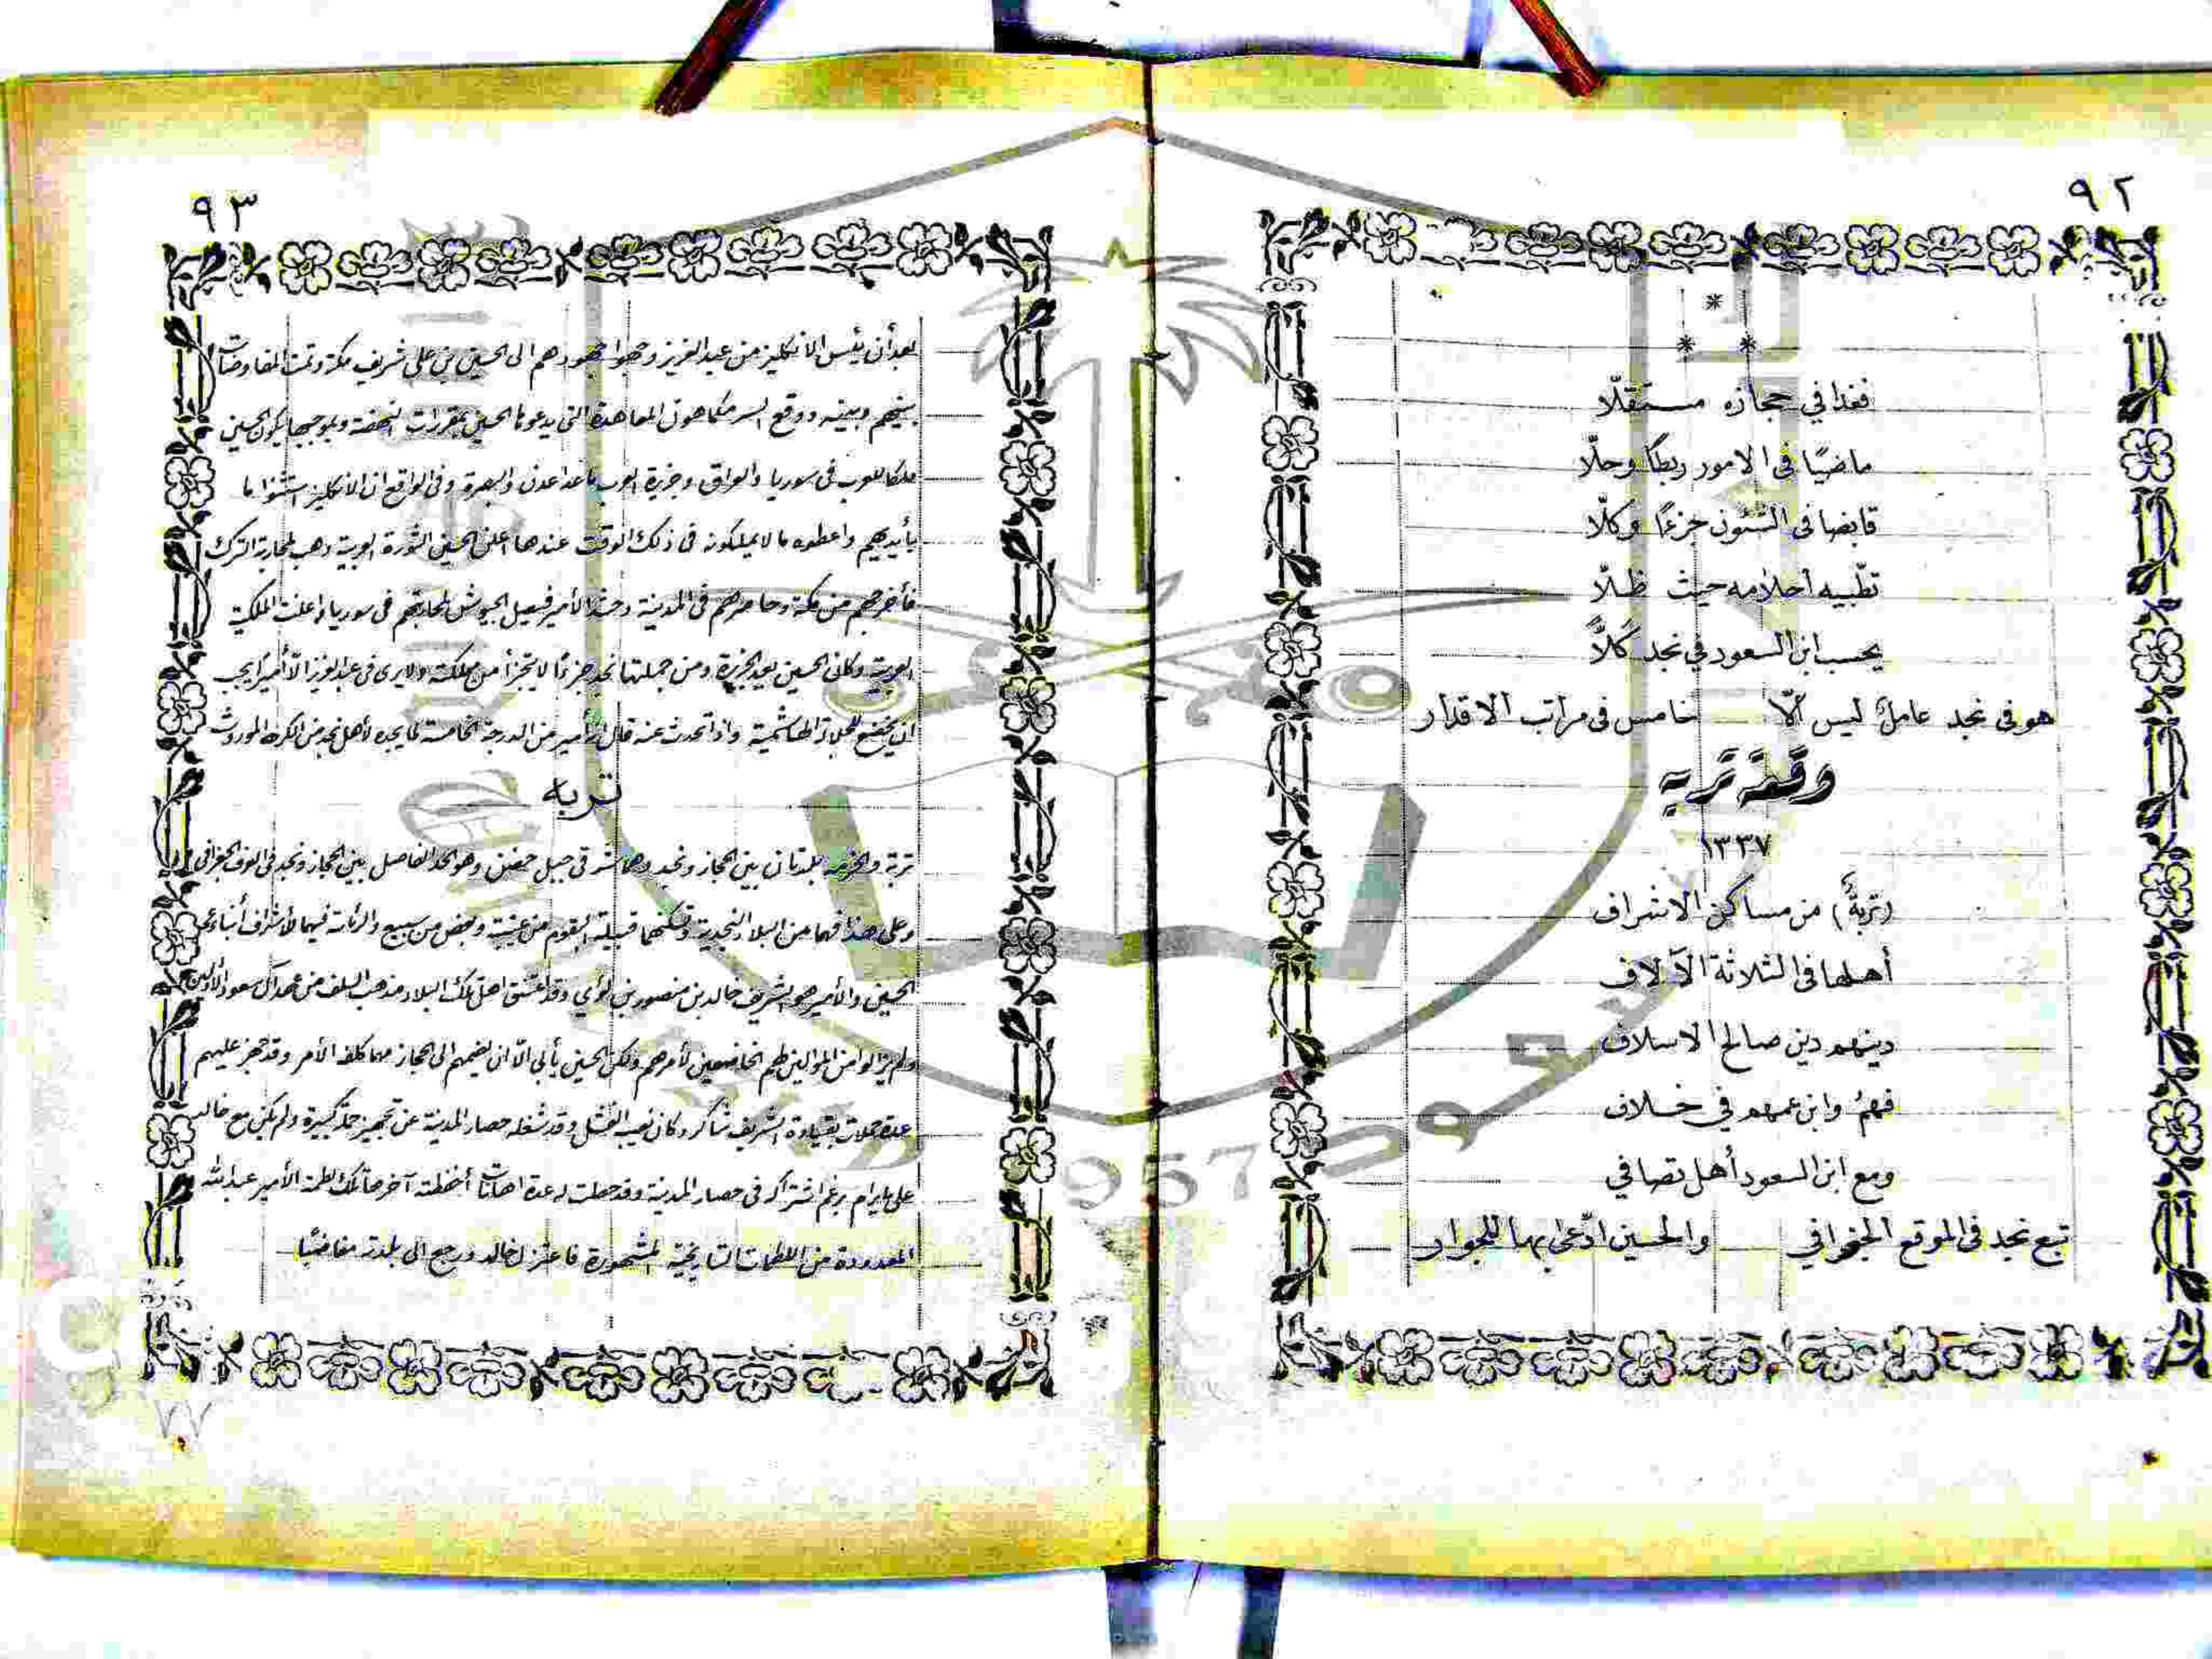 ٩٢
*
* *
فغدا في حجازه مستقلّا
ماضيًا في الامور ربطًا وحلّا
قابضا في الشئون جزءًا وكلّا
تطّبيه أحلامه حيث ظلّا
يحسب ابن السعود في نجد كَلّاً
هو في نجد عاملٌ ليس الّا خامس في مراتب الاقدار
وقعة تربه
١٣٣٧
(تربةٌ) من مساكن الاشراف
أهلها في الثلاثة الآلاف
دينهم دين صالح الاسلاف
فهمُ وابن عمهم في خلاف
ومع ابن السعود أهل تصافي
تبع نجد في الموقع الجغرافي والحسين ادّعى بها للجوار
٩٣
بعد أن يئس الانكليز من عبد العزيز وجهوا جهودهم الى الحسين بن علي شريف مكة وتمت المفاوضات
بينهم وبينه ووقع السر مكماهون المعاهدة التي يدعوها الحسين بمقررات النهضة وبموجبها يكون الحسين
ملكا للعرب في سوريا والعراق وجزيرة العرب ماعدا عدن والبصرة وفي الواقع ان الانكليز استثنوا ما
بأيديهم واعطوه ما لا يملكونه في ذلك الوقت عندها اعلن الحسين الثورة العربية وهب لمحاربة الترك
فأخرجهم من مكة وحاصرهم في المدينة وحشد الأمير فيصل الجيوش لمحاربتهم في سوريا واعلنت الملكية
العربية وكان الحسين يعد الجزيرة ومن جملتها نجد جزءًا لا يتجزأ من مملكته ولا يرى في عبد العزيز الّا أميرًا يجب
ان يخضع للجلالة الهاشمية واذا تحدث عنه قال أمير من الدرجة الخامسة لما يجده لأهل نجد من الكره الموروث
تربه
تربة والخرمه بلدتان بين الحجاز ونجد وهما شرقي جبل حضن وهو الحد الفاصل بين الحجاز ونجد في العرف الجغرافي
وعلى هذا فهما من البلاد النجدية وتسكنهما قبيلة البقوم من عتيبة وبعض من سبيع والرئاسة فيهما لأشراف أبناء عم
الحسين والأمير هو الشريف خالد بن منصور بن لؤي وقد اعتنق اهل تلك البلاد مذهب السلف من عهد آل سعود الأولين
ولم يزالوا من الموالين لهم الخاضعين لأمرهم ولكن الحسين يأبى الّا ان يضمهم الى الحجاز مهما كلف الأمر وقد جهز عليهم
عدة حملات بقيادة الشريف شاكر وكان نصيبها الفشل وقد شغله حصار المدينة عن تجهيز حملة كبيرة ولم يكن مع خالد
على مايرام رغم اشتراكه في حصار المدينة وقد حصلت له عدة اهانات أحفظته آخرها تلك لطمة الأمير عبد الله
المعدودة من اللطمات التاريخية المشهورة فاعتزل خالد ورجع الى بلدته مغاضبًا